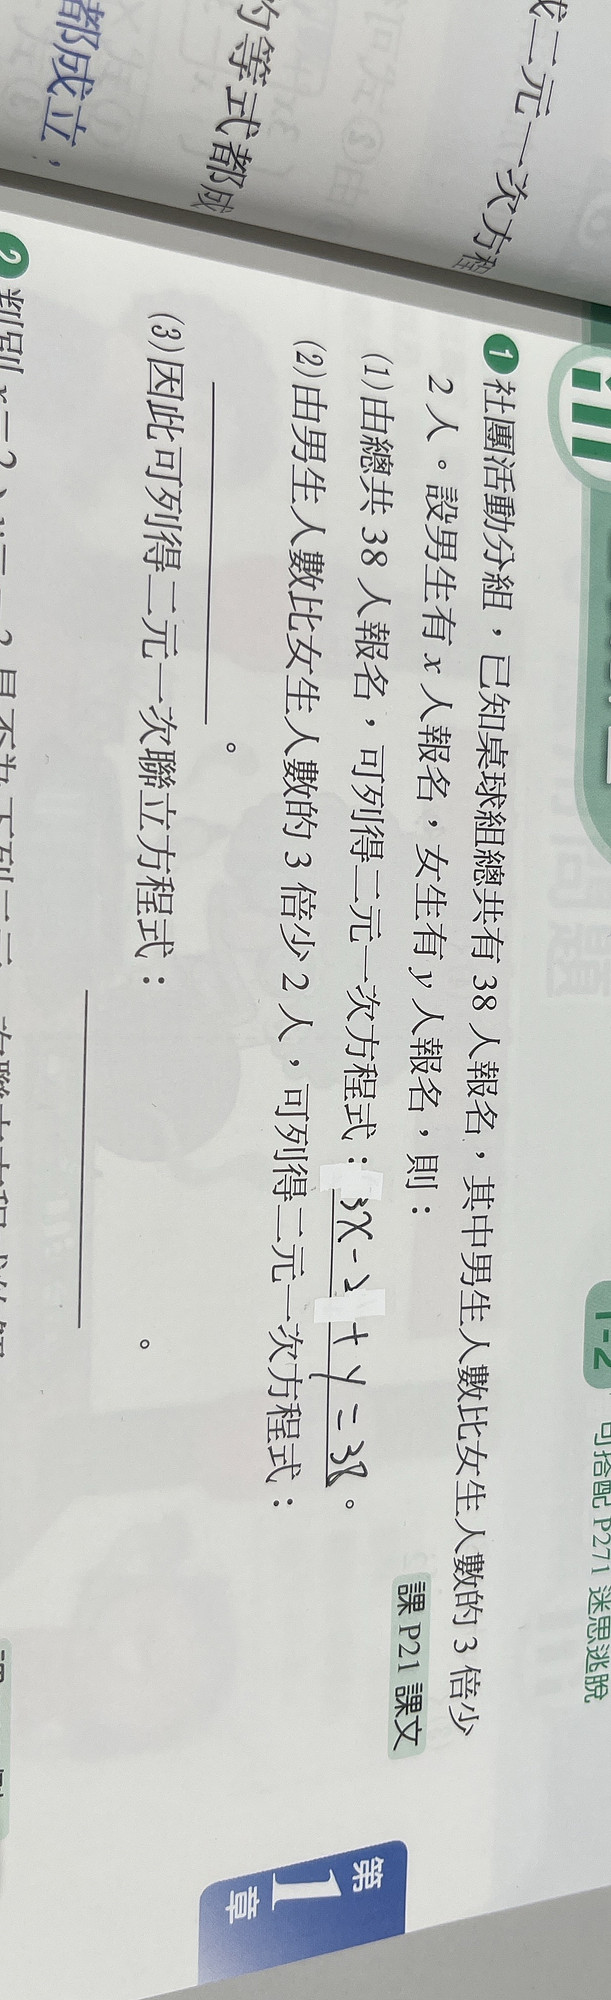 成二元一次方程
的等式都成
都成立，
1-2 可搭配 P271 迷思逃脫
1 社團活動分組，已知桌球組總共有 38 人報名，其中男生人數比女生人數的 3 倍少
2 人。設男生有 x 人報名，女生有 y 人報名，則：
課 P21 課文
(1) 由總共 38 人報名，可列得二元一次方程式：3x-2+y=38。
(2) 由男生人數比女生人數的 3 倍少 2 人，可列得二元一次方程式：
。
(3) 因此可列得二元一次聯立方程式：
。
2 判別 x=2、y=
第 1 章